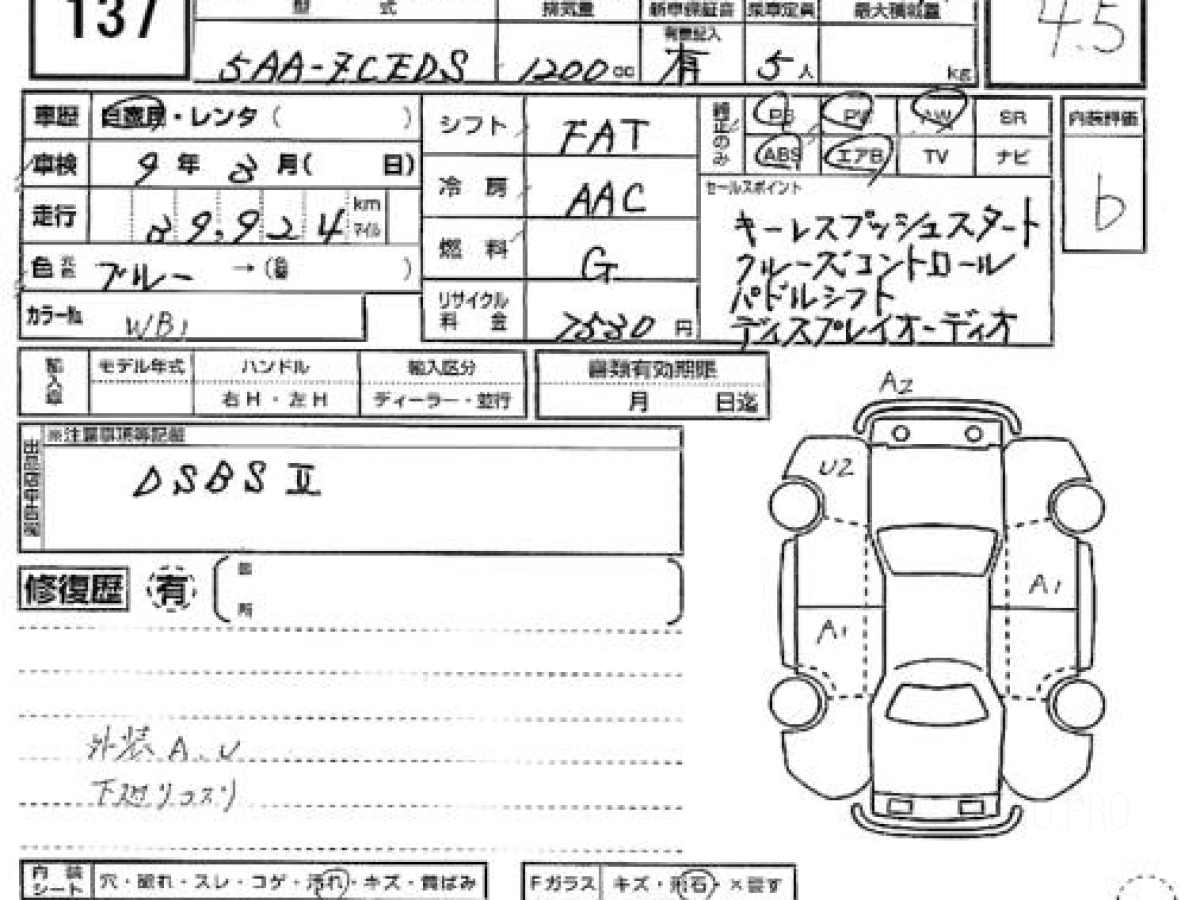 137
型式 排気量 新車保証書 乗車定員 最大積載量
有無記入
5AA-ZCEDS 1200cc 有 5人 kg
4.5
車歴 自家用・レンタ( )
車検 9年 8月( 日)
走行 39,924 km マイル
色 元色 ブルー →(色替 )
カラーNo. WB1
シフト FAT
冷房 AAC
燃料 G
リサイクル料金 7530円
純正のみ PS PW AW SR
ABS エアB TV ナビ
内装評価
b
セールスポイント
キーレスプッシュスタート
クルーズコントロール
パドルシフト
ディスプレイオーディオ
輸入車 モデル年式 ハンドル 輸入区分 書類有効期限
右H・左H ディーラー・並行 月 日迄
※注意事項等記載
出品店申告欄
DSBSⅡ
修復歴 有 ( 箇所 )
外装A、U
下廻りコスリ
A2
U2
A1
A1
内装シート 穴・破れ・スレ・コゲ・汚れ・キズ・黄ばみ
Fガラス キズ・飛石・×要す
O.PRO